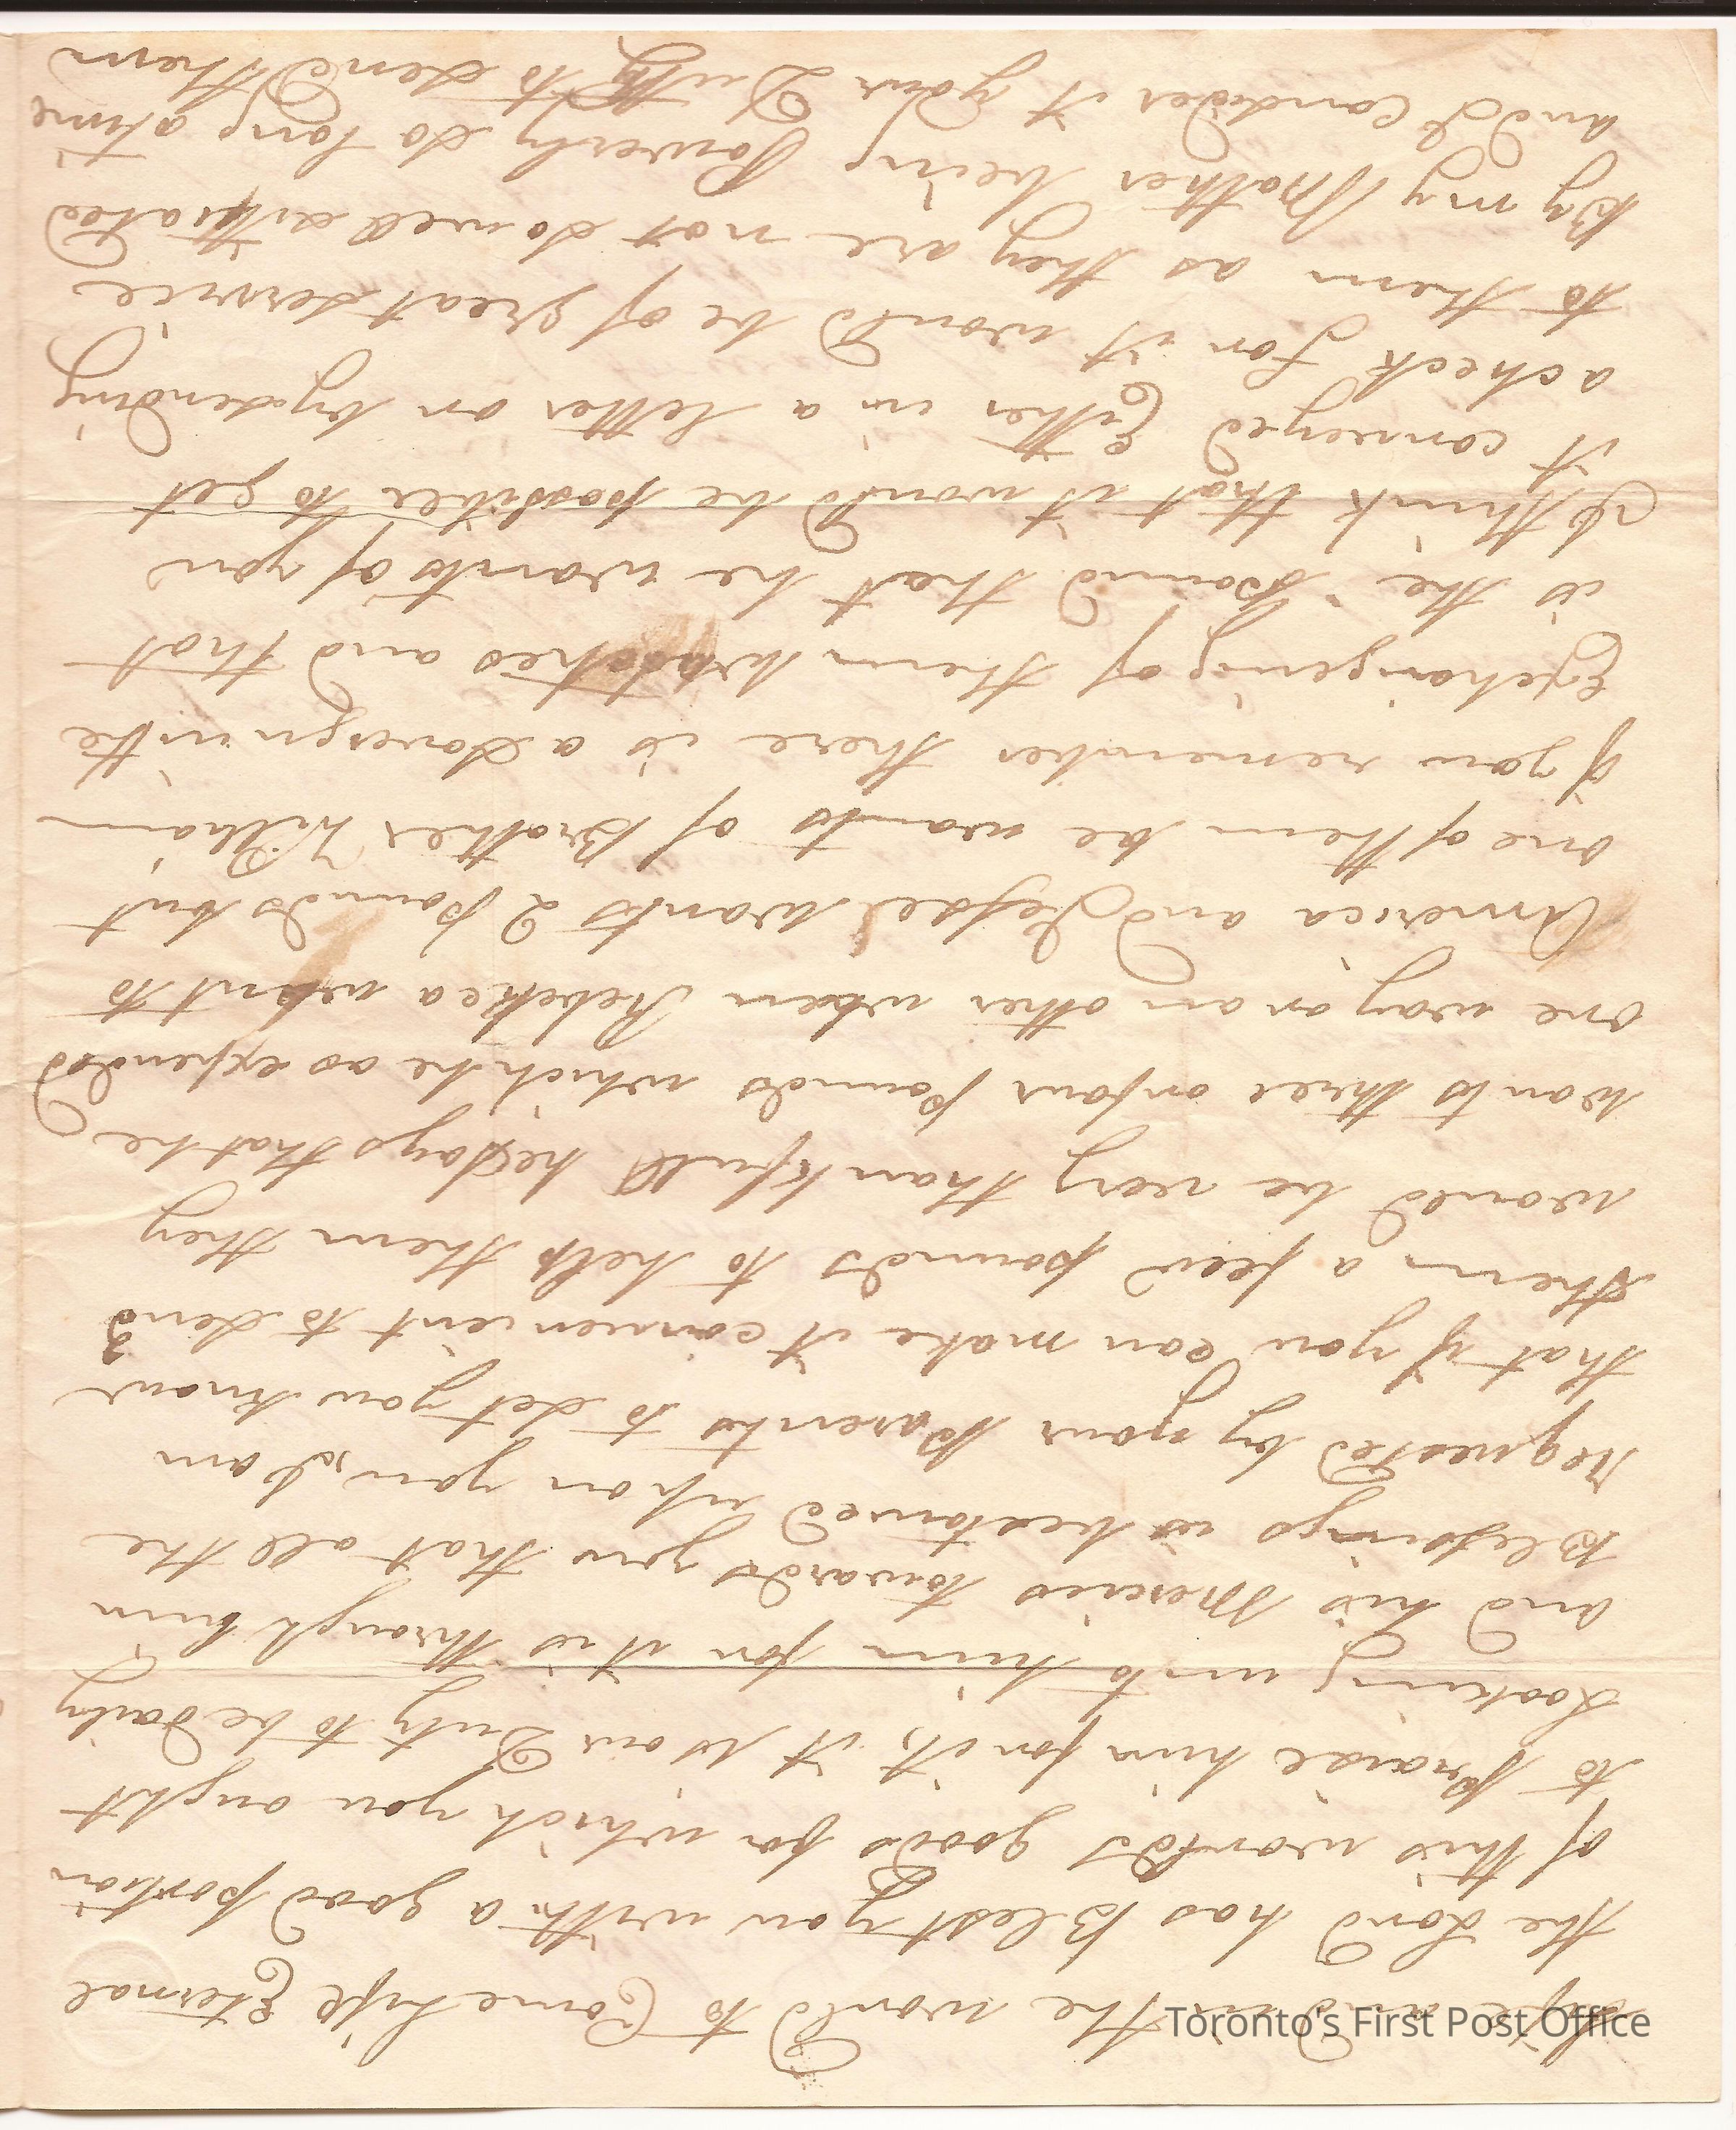 Life and in the world to Come Life Eternal
the Lord has Blest you with a good portion
of this worlds goods for which you ought
to Praise him for it, it is our Duty to be daily
Looking unto him for it is through him
and his Mercies towards you that all the
Blessings is bestowed upon you, I am
requested by your Parents to Let you know
that if you can make it convenient to Send
them a few pounds to help them they
would be very thankfull he Says that he
wants three or four pounds which he as expended
one way or an other when Rebekea went to
America and Jessee wants 2 pounds but
one of them he wants of Brother William
if you remember there is a Sovereign in the
Exchangeing of them watches and that
is the Pound that he wants of you
I think that it would be possibel to get
it conveyed Either in a letter or by sending
a check for it would be of great Service
to them as they are not so well situated
By my Mother being Powerly so long a time
and I Consider it your Duty to send them
Toronto's First Post Office